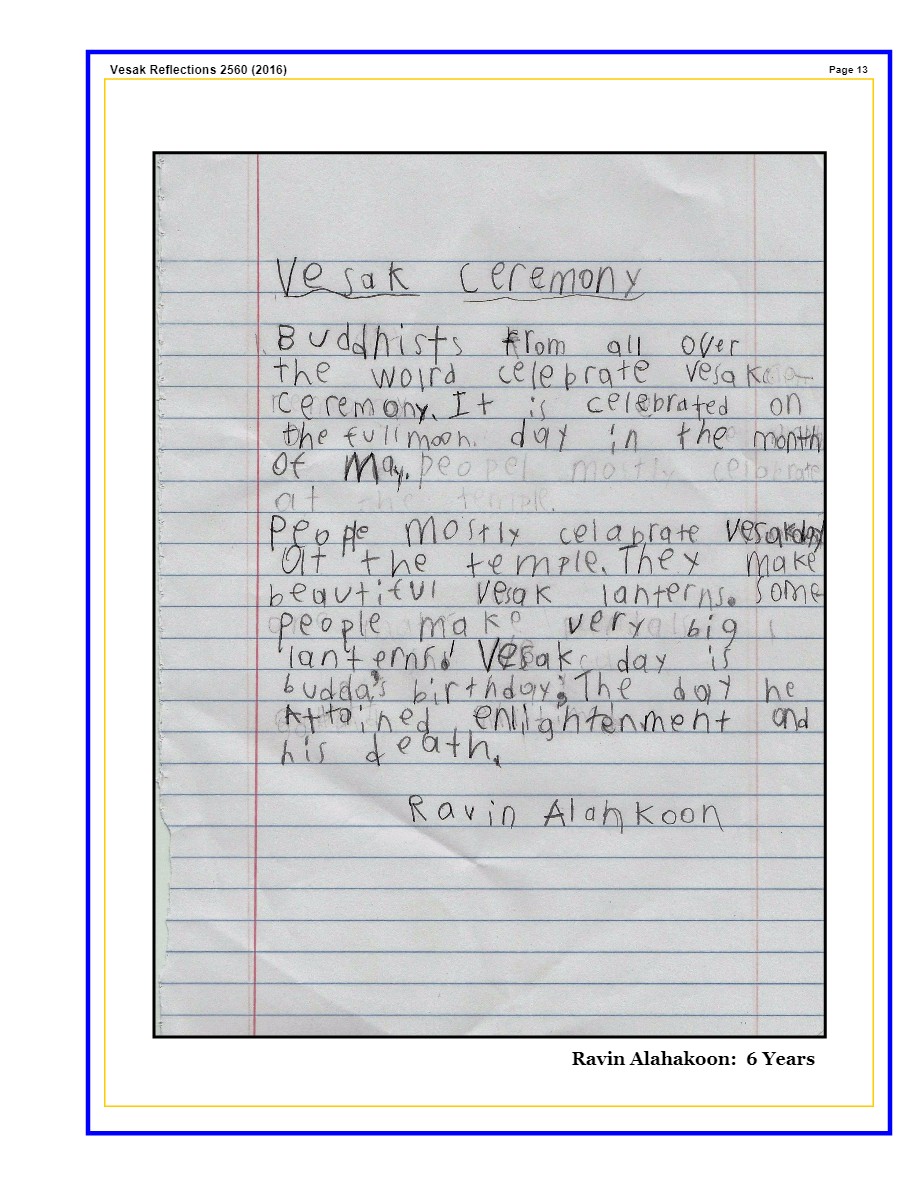 Vesak Reflections 2560 (2016)
Page 13
Vesak ceremony
Buddhists from all over
the woird celebrate vesak
ceremony. It is celebrated on
the full moon day in the month
of May. peopel mostly celbrate
at the temple.
People mostly celabrate vesakday
at the temple. They make
beautiful vesak lanterns. Some
people make very big
lanterns! Vesak day is
budda's birthday. The day he
Attained enlightenment and
his death.
Ravin Alahkoon
Ravin Alahakoon: 6 Years